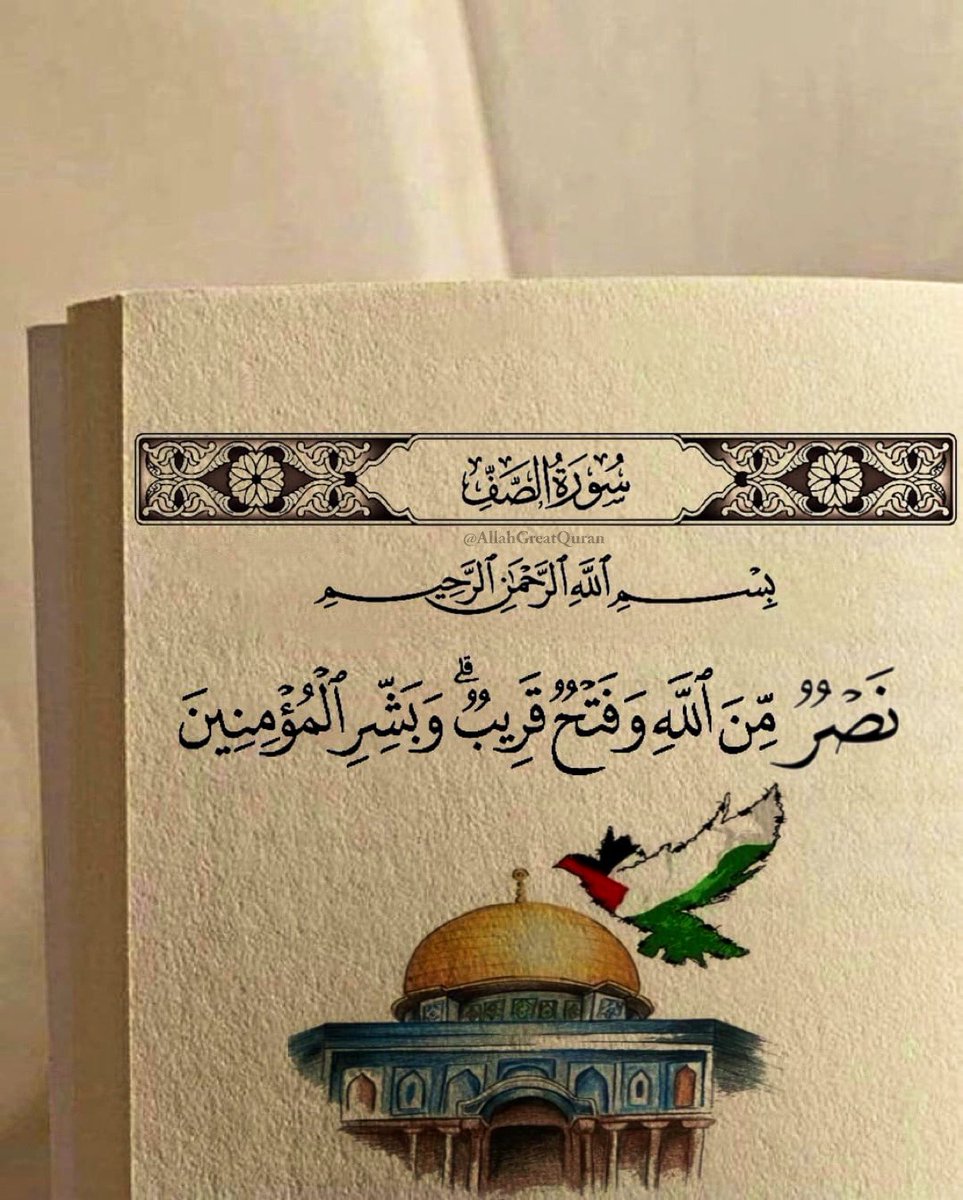 سُورَةُ الصَّفِّ
@AllahGreatQuran
بِسْمِ ٱللَّهِ ٱلرَّحْمَٰنِ ٱلرَّحِيمِ
نَصْرٌ مِّنَ ٱللَّهِ وَفَتْحٌ قَرِيبٌ ۗ وَبَشِّرِ ٱلْمُؤْمِنِينَ